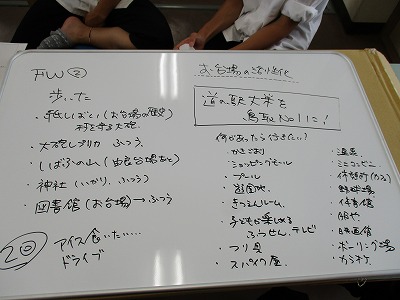 FW②
歩いた
・紙しばい(お台場の歴史)
村を守る大砲
・大砲レプリカ ふつう
・しばふの山(由良台場あと)
・神社(いかり、ふつう)
・図書館(お台場)→ふつう
2回
アイス食いたい....
ドライブ
お台場の活性化
道の駅大栄を
鳥取No1に!
何があったら行きたい?
・かきごおり
・ショッピングモール
・プール
・遊園地
・きつえんルーム
・子どもが楽しめる
ふうせん、テレビ
・つり具
・スパイク屋
・温泉
・ミニコンビニ
・野球場
・体育館
・服や
・映画館
・ボーリング場
・カラオケ